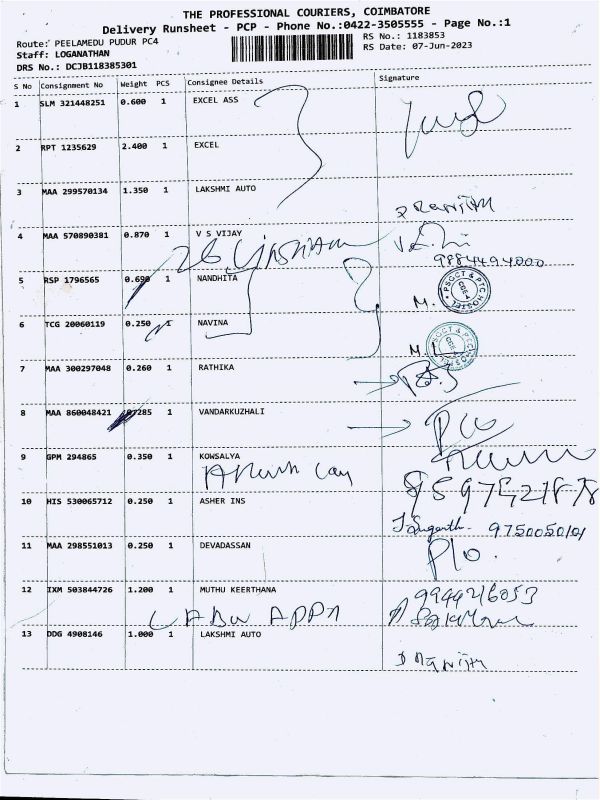 THE PROFESSIONAL COURIERS, COIMBATORE
Delivery Runsheet - PCP - Phone No.:0422-3505555 - Page No.:1
Route: PEELAMEDU PUDUR PC4
RS No.: 1183853
Staff: LOGANATHAN
RS Date: 07-Jun-2023
DRS No.: DCJB118385301
S No Consignment No Weight PCS Consignee Details Signature
1 SLM 321448251 0.600 1 EXCEL ASS
2 RPT 1235629 2.400 1 EXCEL
3 MAA 299570134 1.350 1 LAKSHMI AUTO
4 MAA 570890381 0.870 1 V S VIJAY
9884494000
5 RSP 1796565 0.690 1 NANDHITA
PSGCT & PTC HOSTEL
M.
6 TCG 20060119 0.250 1 NAVINA
PSGCT & PTC HOSTEL
M.
7 MAA 300297048 0.260 1 RATHIKA
8 MAA 860048421 285 1 VANDARKUZHALI
P/o
9 GPM 294865 0.350 1 KOWSALYA
10 HIS 530065712 0.250 1 ASHER INS
9750050101
11 MAA 298551013 0.250 1 DEVADASSAN
P/o.
12 IXM 503844726 1.200 1 MUTHU KEERTHANA
9944216053
13 DDG 4908146 1.000 1 LAKSHMI AUTO